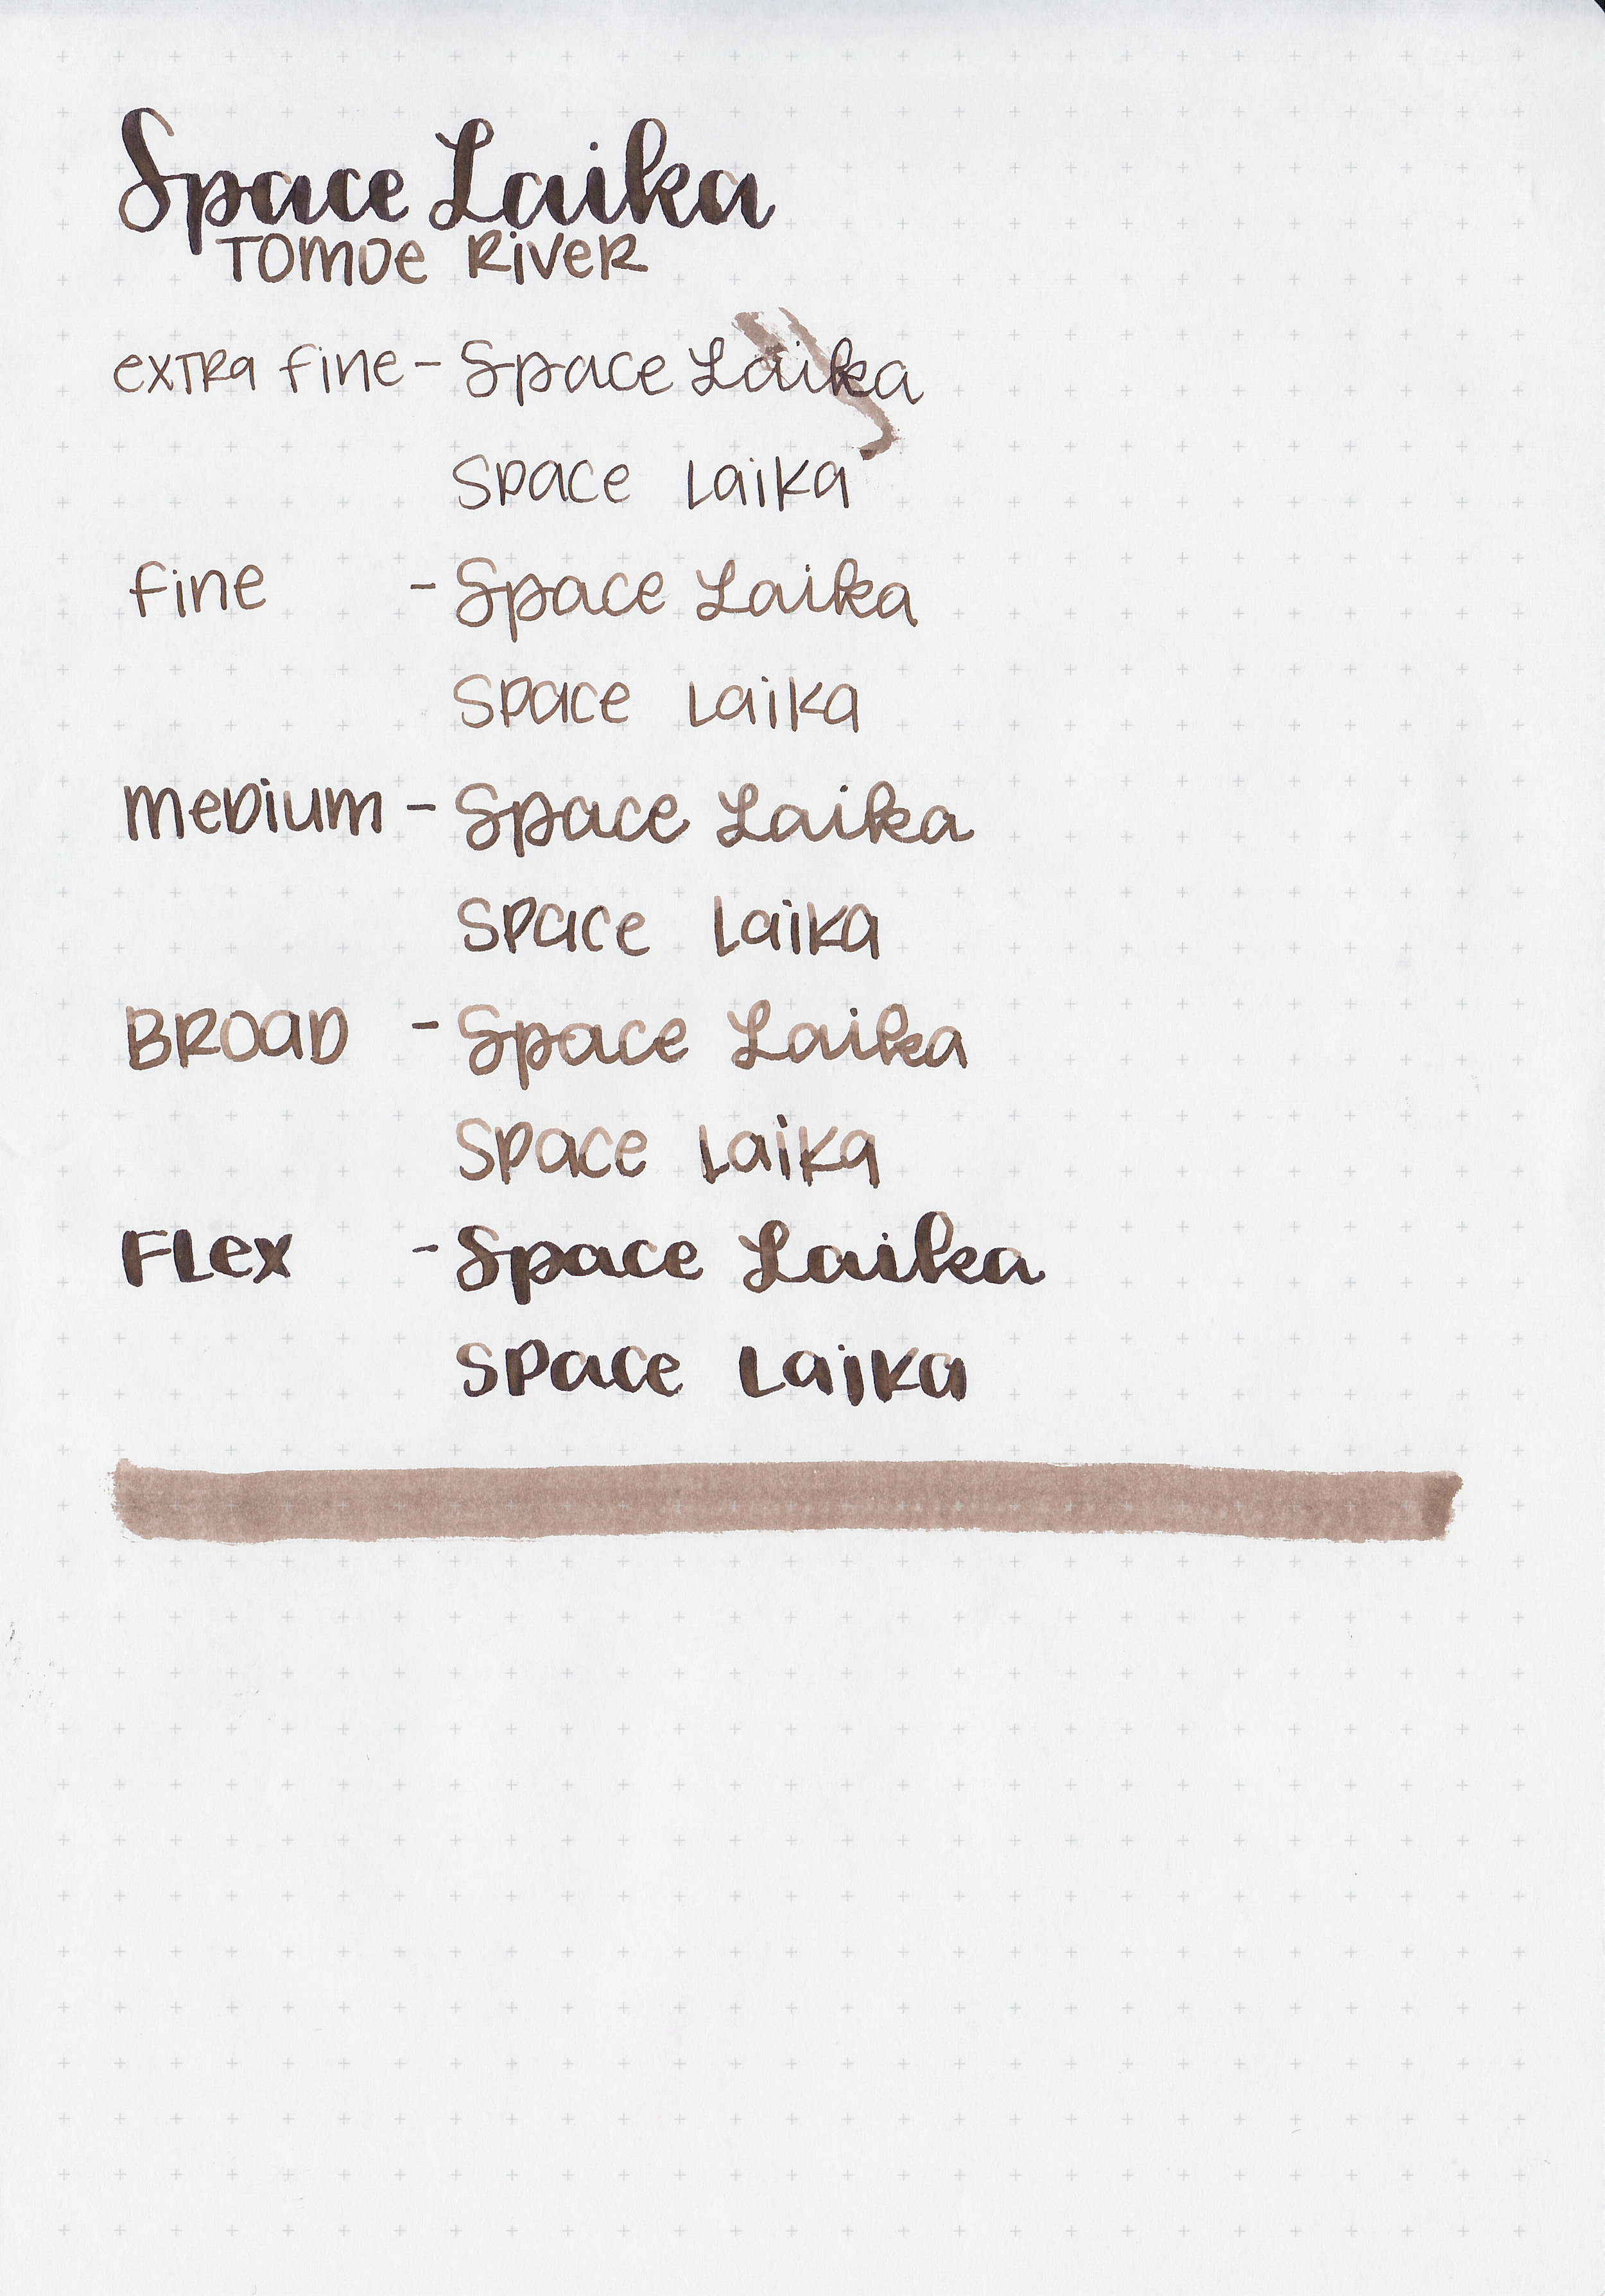 Space Laika
TOMOe RiveR
exTRa fine - Space Laika
Space Laika
fine - Space Laika
Space Laika
meDium - Space Laika
Space Laika
BROaD - Space Laika
Space Laika
FLex - Space Laika
Space Laika